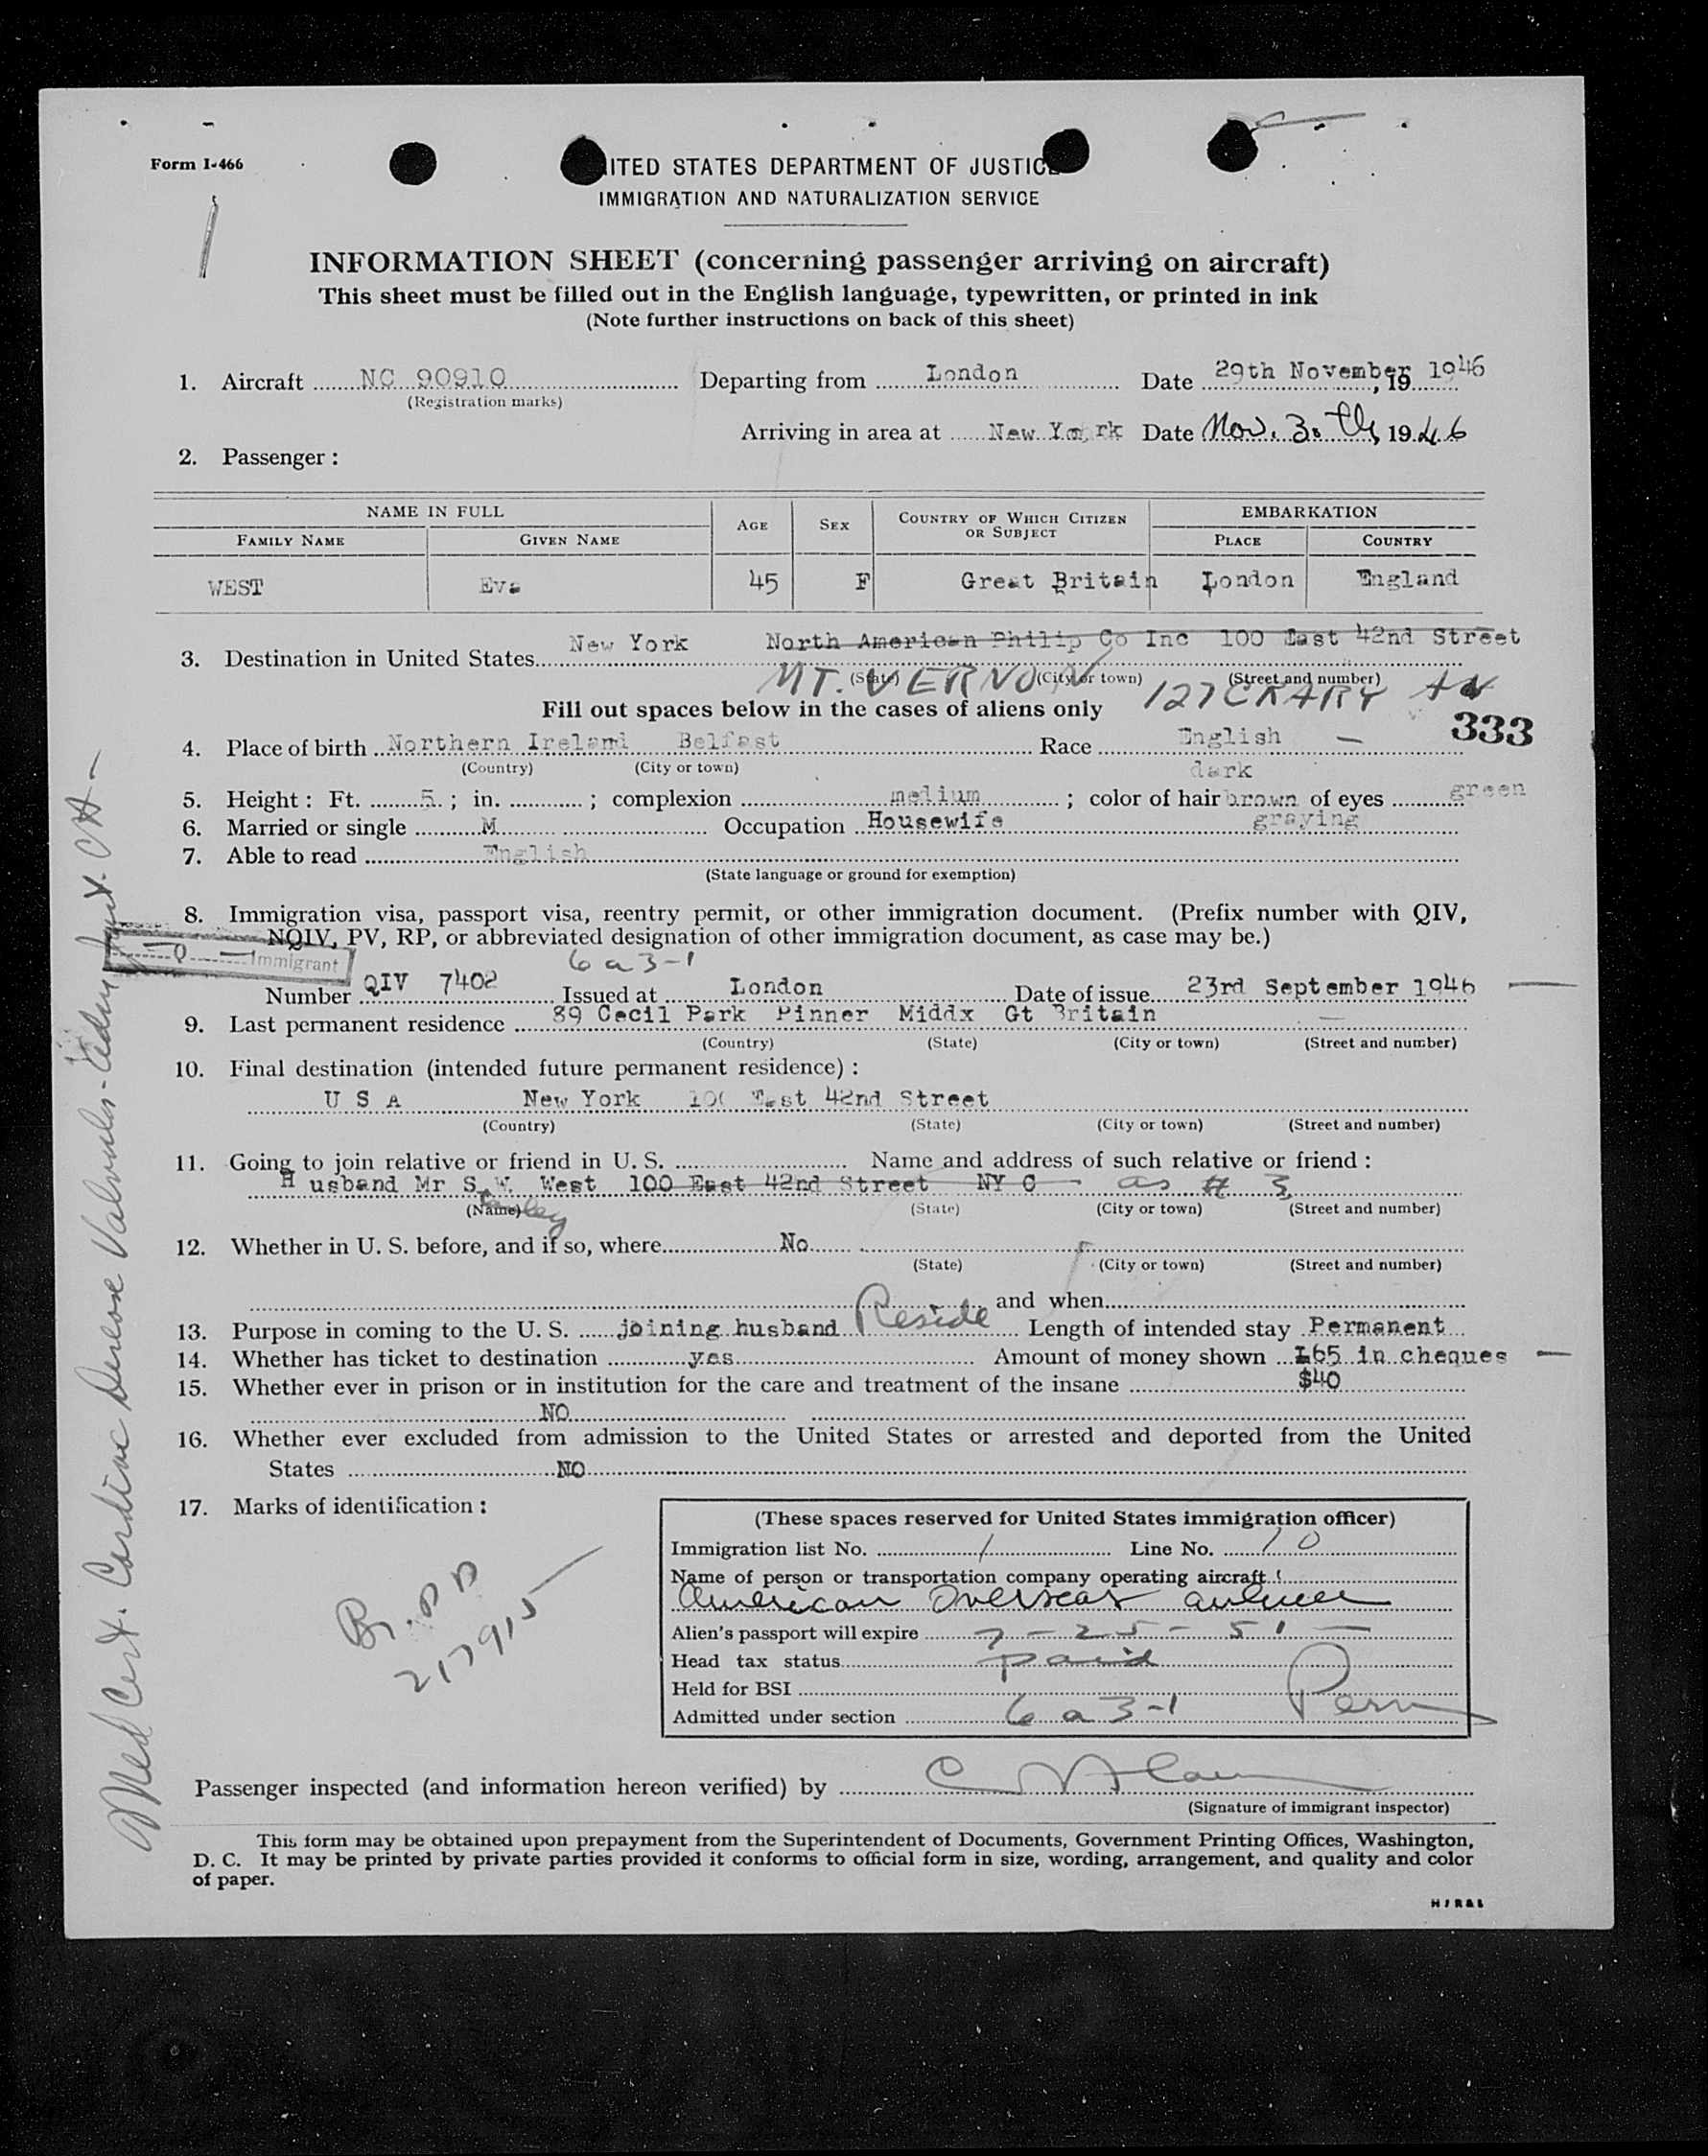 Form I-466
ITED STATES DEPARTMENT OF JUSTIC
IMMIGRATION AND NATURALIZATION SERVICE
INFORMATION SHEET (concerning passenger arriving on aircraft)
This sheet must be filled out in the English language, typewritten, or printed in ink
(Note further instructions on back of this sheet)
1. Aircraft NC 90910 Departing from London Date 29th November, 19 1946
(Registration marks)
Arriving in area at New York Date Nov. 30th, 1946
2. Passenger:
NAME IN FULL AGE SEX COUNTRY OF WHICH CITIZEN OR SUBJECT EMBARKATION
FAMILY NAME GIVEN NAME PLACE COUNTRY
WEST Eva 45 F Great Britain London England
3. Destination in United States New York North American Philip Co Inc 100 East 42nd Street
(State) (City or town) (Street and number)
MT. VERNON 127 CRARY AV
Fill out spaces below in the cases of aliens only
333
4. Place of birth Northern Ireland Belfast Race English —
(Country) (City or town)
dark
5. Height: Ft. 5; in. ; complexion medium; color of hair brown of eyes green
6. Married or single M Occupation Housewife graying
7. Able to read English
(State language or ground for exemption)
8. Immigration visa, passport visa, reentry permit, or other immigration document. (Prefix number with QIV,
NQIV, PV, RP, or abbreviated designation of other immigration document, as case may be.)
Q Immigrant
6 a 3-1
Number QIV 7402 Issued at London Date of issue 23rd September 1946
9. Last permanent residence 89 Cecil Park Pinner Middx Gt Britain
(Country) (State) (City or town) (Street and number)
10. Final destination (intended future permanent residence):
U S A New York 100 East 42nd Street
(Country) (State) (City or town) (Street and number)
11. Going to join relative or friend in U. S. Name and address of such relative or friend:
Husband Mr S. W. West 100 East 42nd Street NY C - as # 3
(Name) (State) (City or town) (Street and number)
12. Whether in U. S. before, and if so, where No
(State) (City or town) (Street and number)
and when
13. Purpose in coming to the U. S. joining husband Reside Length of intended stay Permanent
14. Whether has ticket to destination yes Amount of money shown £65 in cheques
15. Whether ever in prison or in institution for the care and treatment of the insane $40
NO
16. Whether ever excluded from admission to the United States or arrested and deported from the United
States NO
17. Marks of identification:
217915
(These spaces reserved for United States immigration officer)
Immigration list No. 1 Line No. 10
Name of person or transportation company operating aircraft
American Overseas Airlines
Alien's passport will expire 7-25-51
Head tax status paid
Held for BSI
Admitted under section 6 a 3-1 Perm
Passenger inspected (and information hereon verified) by
(Signature of immigrant inspector)
This form may be obtained upon prepayment from the Superintendent of Documents, Government Printing Offices, Washington,
D. C. It may be printed by private parties provided it conforms to official form in size, wording, arrangement, and quality and color
of paper.
Med Cert. Cardiac Disease Valvular